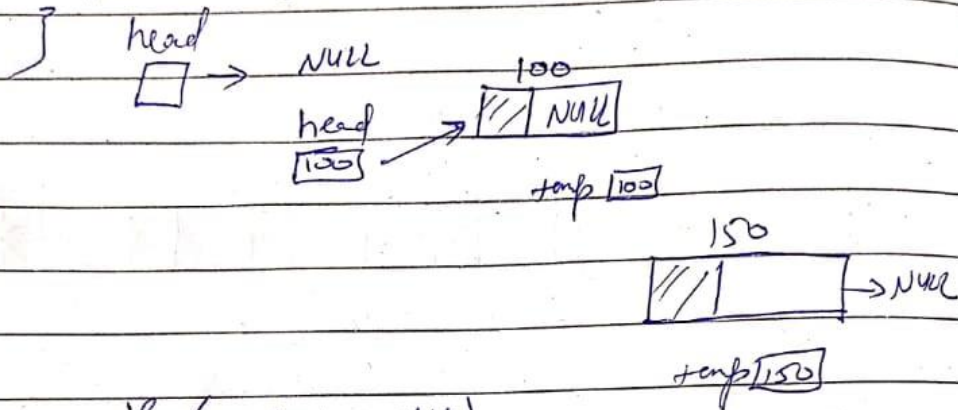 head
NULL
100
NULL
head
100
temp 100
150
NULL
temp 150